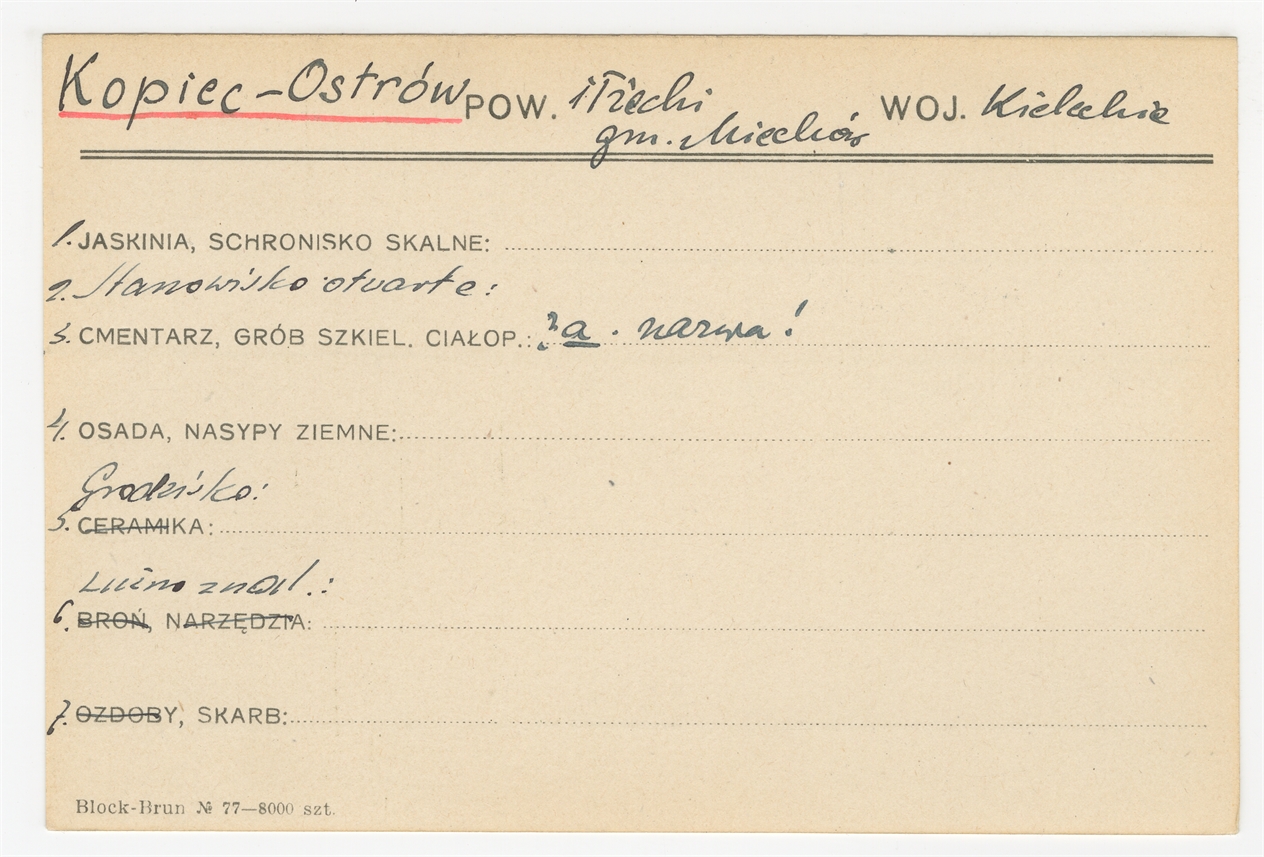 Kopiec-Ostrów POW. iłżecki WOJ. Kieleckie
gm. Miechów
1. JASKINIA, SCHRONISKO SKALNE:
2. Stanowisko otwarte:
3. CMENTARZ, GRÓB SZKIEL. CIAŁOP.: ? a. nazwa!
4. OSADA, NASYPY ZIEMNE:
Grodzisko:
5. CERAMIKA:
Luźno znal.:
6. BROŃ, NARZĘDZIA:
7. OZDOBY, SKARB:
Block-Brun № 77—8000 szt.